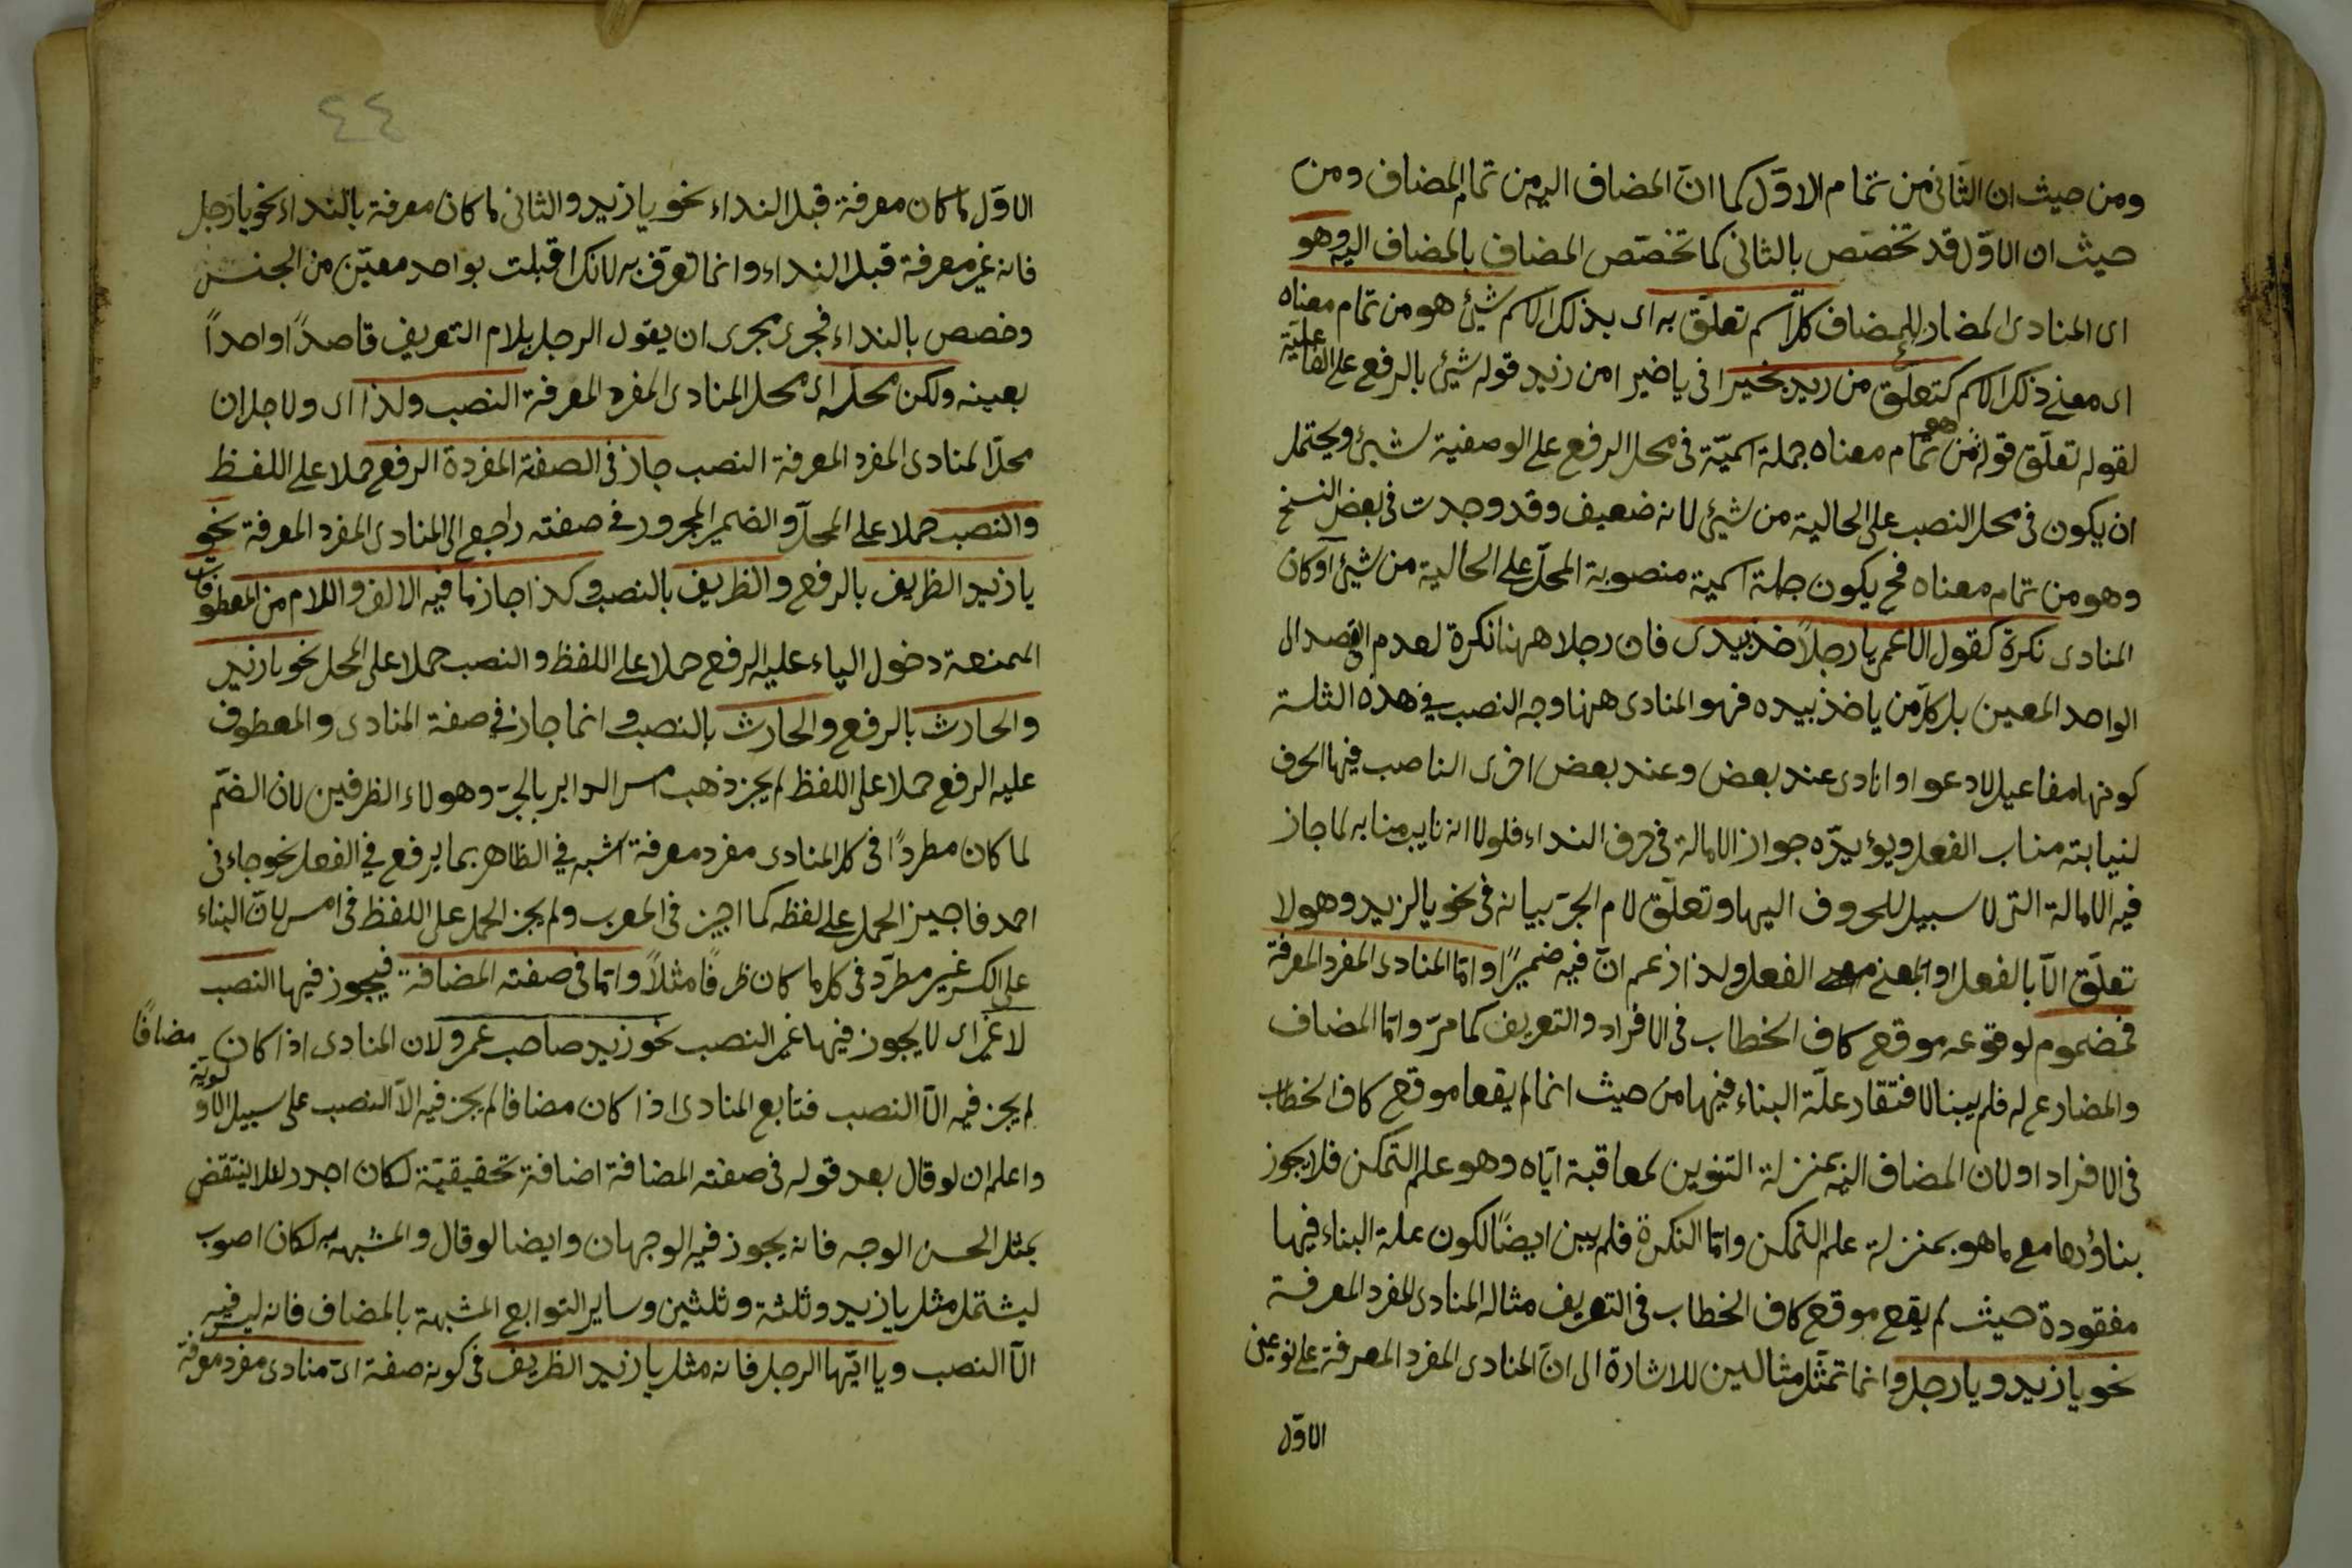 ومن حيث ان الثاني من تمام الاول كما ان المضاف اليه من تمام المضاف ومن
حيث ان الاول قد تخصص بالثاني كما تخصص المضاف بالمضاف اليه وهو
اى المنادى المضارع للمضاف كل اسم تعلق به اى بذلك الاسم شيئ هو من تمام معناه
اى معنى ذلك الاسم كتعلق من زيد بخيرا فى يا خيرا من زيد قوله شيئ بالرفع على الفاعلية
لقوله تعلق قوله هو من تمام معناه جملة اسمية فى محل الرفع على الوصفية لشيئ ويحتمل
ان يكون فى محل النصب على الحالية من شيئ لانه ضعيف وقد وجدت فى بعض النسخ
وهو من تمام معناه فح يكون جملة اسمية منصوبة المحل على الحالية من شيئ او كان
المنادى نكرة كقول الاعمى يا رجلاً خذ بيدى فان رجلا ههنا نكرة لعدم القصد الى
الواحد المعين بل كل من ياخذ بيده فهو المنادى ههنا وجه النصب فى هذه الثلثة
كونها مفاعيل لادعو او انادى عند بعض وعند بعض اخرى الناصب فيها الحرف
لنيابته مناب الفعل ويؤيده جواز الامالة فى حرف النداء فلولا انه نايب منابه لما جاز
فيه الامالة التى لا سبيل للحروف اليها وتعلق لام الجر بيانه فى نحو يا لزيد وهو لا
تعلق الا بالفعل او بمعنى الفعل ولذا زعم ان فيه ضميرًا واما المنادى المفرد المعرفة
فمضموم لوقوعه موقع كاف الخطاب فى الافراد والتعريف كما مرّ واما المضاف
والمضارع له فلم يبنا لافتقار علّة البناء فيها من حيث انما لم يقعا موقع كاف الخطاب
فى الافراد او لان المضاف اليه بمنزلة التنوين لمعاقبة اياه وهو علم التمكن فلا يجوز
بناؤها مع ما هو بمنزلة علم التمكن واما النكرة فلم يبن ايضًا لكون علة البناء فيها
مفقودة حيث لم يقع موقع كاف الخطاب فى التعريف مثاله المنادى المفرد المعرفة
نحو يا زيد ويا رجل وانما تمثل مثالين للاشارة الى ان المنادى المفرد المعرفة على نوعين
الاول
٤٤
الاول ما كان معرفة قبل النداء نحو يا زيد والثانى ما كان معرفة بالنداء نحو يا رجل
فانه غير معرفة قبل النداء وانما تعرف به لانك اقبلت بواحد معيّن من الجنس
وخصص بالنداء فجرى مجرى ان يقول الرجل بلام التعريف قاصداً واحداً
بعينه ولكن محله اى محل المنادى المفرد المعرفة النصب ولذا اى ولاجل ان
محل المنادى المفرد المعرفة النصب جاز فى الصفة المفردة الرفع حملا على اللفظ
والنصب حملا على المحل والضمير المجرور فى صفته راجع الى المنادى المفرد المعرفة نحو
يا زيد الظريف بالرفع والظريف بالنصب وكذا جاز ما فيه الالف واللام من المعطوفات
الممنعة دخول الياء عليه الرفع حملا على اللفظ والنصب حملا على المحل نحو يا زيد
والحارث بالرفع والحارث بالنصب وانما جاز فى صفة المنادى والمعطوف
عليه الرفع حملا على اللفظ لم يجز ذهب امس الدابر بالجرّ وهولاء الظرفين لان الضمّ
لما كان مطردًا فى كل المنادى مفرد معرفة اشبه فى الظاهر بما يرفع فى الفعل نحو جاءنى
احمد فاجيز الحمل على لفظه كما اجيز فى المعرب ولم يجز الحمل على اللفظ فى امس لان البناء
على الكسر غير مطرّد فى كل ما كان ظرفًا مثلاً واما فى صفته المضافة فيجوز فيها النصب
لا غير اى لا يجوز فيها غير النصب نحو زيد صاحب عمرو لان المنادى اذا كان مضافًا
لم يجز فيه الا النصب فتابع المنادى اذا كان مضافا لم يجز فيه الا النصب على سبيل الاولوية
واعلم ان لو قال بعد قوله فى صفته المضافة اضافة تحقيقيّة لكان اجدر لئلا ينتقض
بمثل الحسن الوجه فانه يجوز فيه الوجهان وايضا لو قال والمشبهة به لكان اصوب
ليشتمل مثل يا زيد وثلثة وثلثين وساير التوابع المشبهة بالمضاف فانه ليس فيه
الا النصب ويا ايّها الرجل فانه مثل يا زيد الظريف فى كونه صفة اى منادى مفرد معرفة